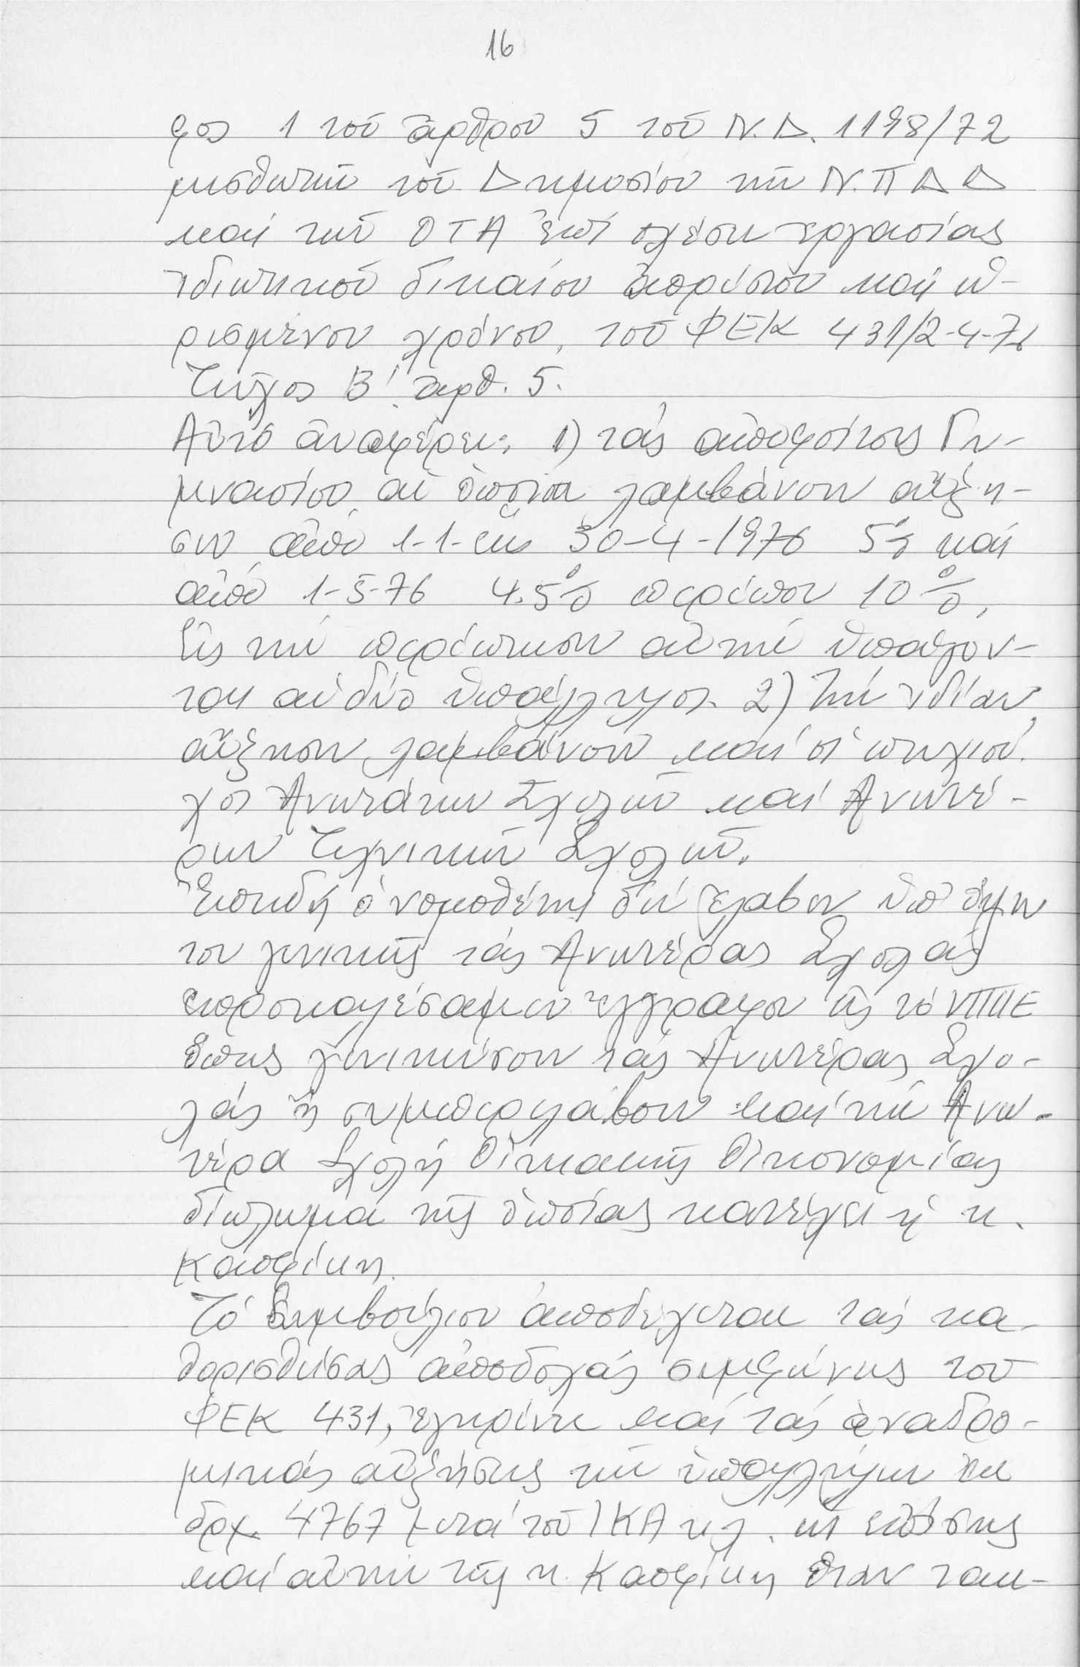 16
φος 1 τοῦ ἄρθρου 5 τοῦ Ν.Δ. 1198/72
μισθωτῶν τοῦ Δημοσίου τῶν Ν.Π.Δ.Δ
καί τῶν ΟΤΑ ἐπί σχέσει ἐργασίας
ἰδιωτικοῦ δικαίου ἀορίστου καί ὡ-
ρισμένου χρόνου, τοῦ ΦΕΚ 431/2-4-76
Τεῦχος Β' ἀρθ. 5.
Αὐτό ἀναφέρει: 1) τάς ἀποφοίτους Γυ-
μνασίου αἱ ὁποῖαι λαμβάνουν αὔξη-
σιν ἀπό 1-1- ἕως 30-4-1976 5% καί
ἀπό 1-5-76 4.5% περίπου 10%,
Εἰς τήν περίπτωσιν αὐτήν ὑπάγον-
ται αἱ δύο ὑπάλληλοι. 2) Τήν ἰδίαν
αὔξησιν λαμβάνουν καί οἱ πτυχιοῦ-
χοι Ἀνωτάτων Σχολῶν καί Ἀνωτέ-
ρων Τεχνικῶν Σχολῶν.
Ἐπειδή ὁ νομοθέτης δέν ἔλαβεν ὑπ' ὄψιν
του γενικῶς τάς Ἀνωτέρας Σχολάς
ἐπροσκαλέσαμεν ἔγγραφον εἰς τό ΥΠΠΕ
ὅπως γενικεύσουν τάς Ἀνωτέρας Σχο-
λάς ἤ συμπεριλάβουν καί τήν Ἀνω-
τέρα Σχολή Οἰκιακῆς Οἰκονομίας
δίπλωμα τῆς ὁποίας κατέχει ἡ κ.
Καπρίκη.
Τό Συμβούλιον ἀποδέχεται τάς κα-
θορισθείσας ἀποδοχάς συμφώνως τοῦ
ΦΕΚ 431, ἐγκρίνει καί τάς ἀναδρο-
μικάς αὐξήσεις τῶν ὑπαλλήλων ἐκ
δρχ. 4767 μετά τοῦ ΙΚΑ κλ. ὡς ἐπίσης
καί αὐτήν τῆς κ. Καπρίκη ὅταν τακ-